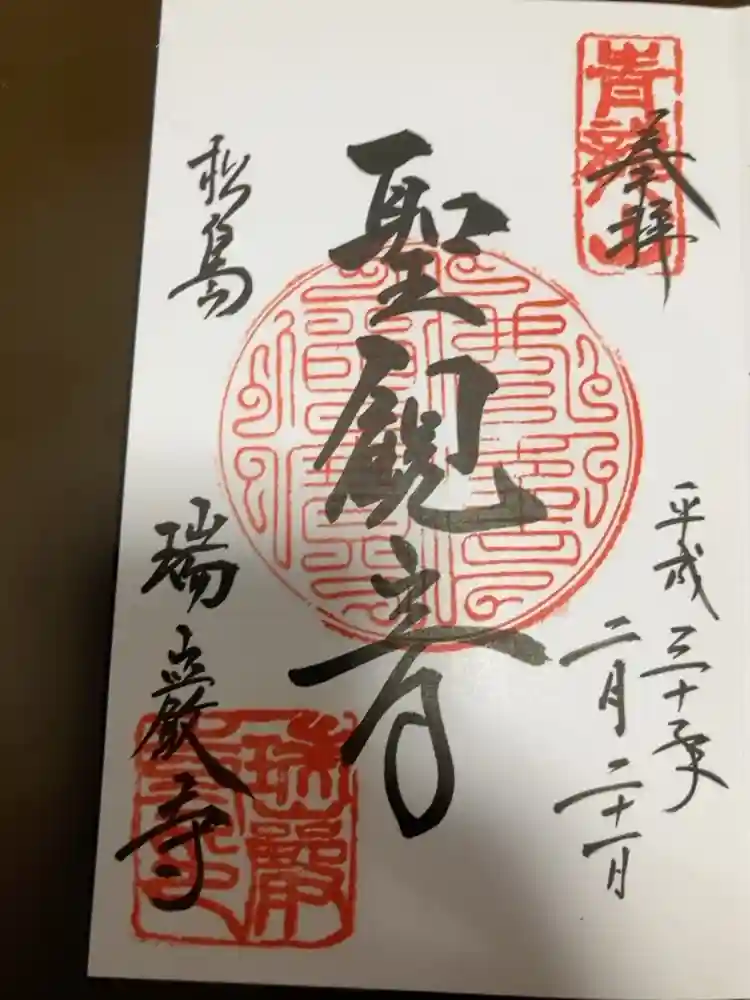 奉拝
青龍山
平成三十年
二月二十一日
聖観音
松島
瑞巌寺
瑞巌